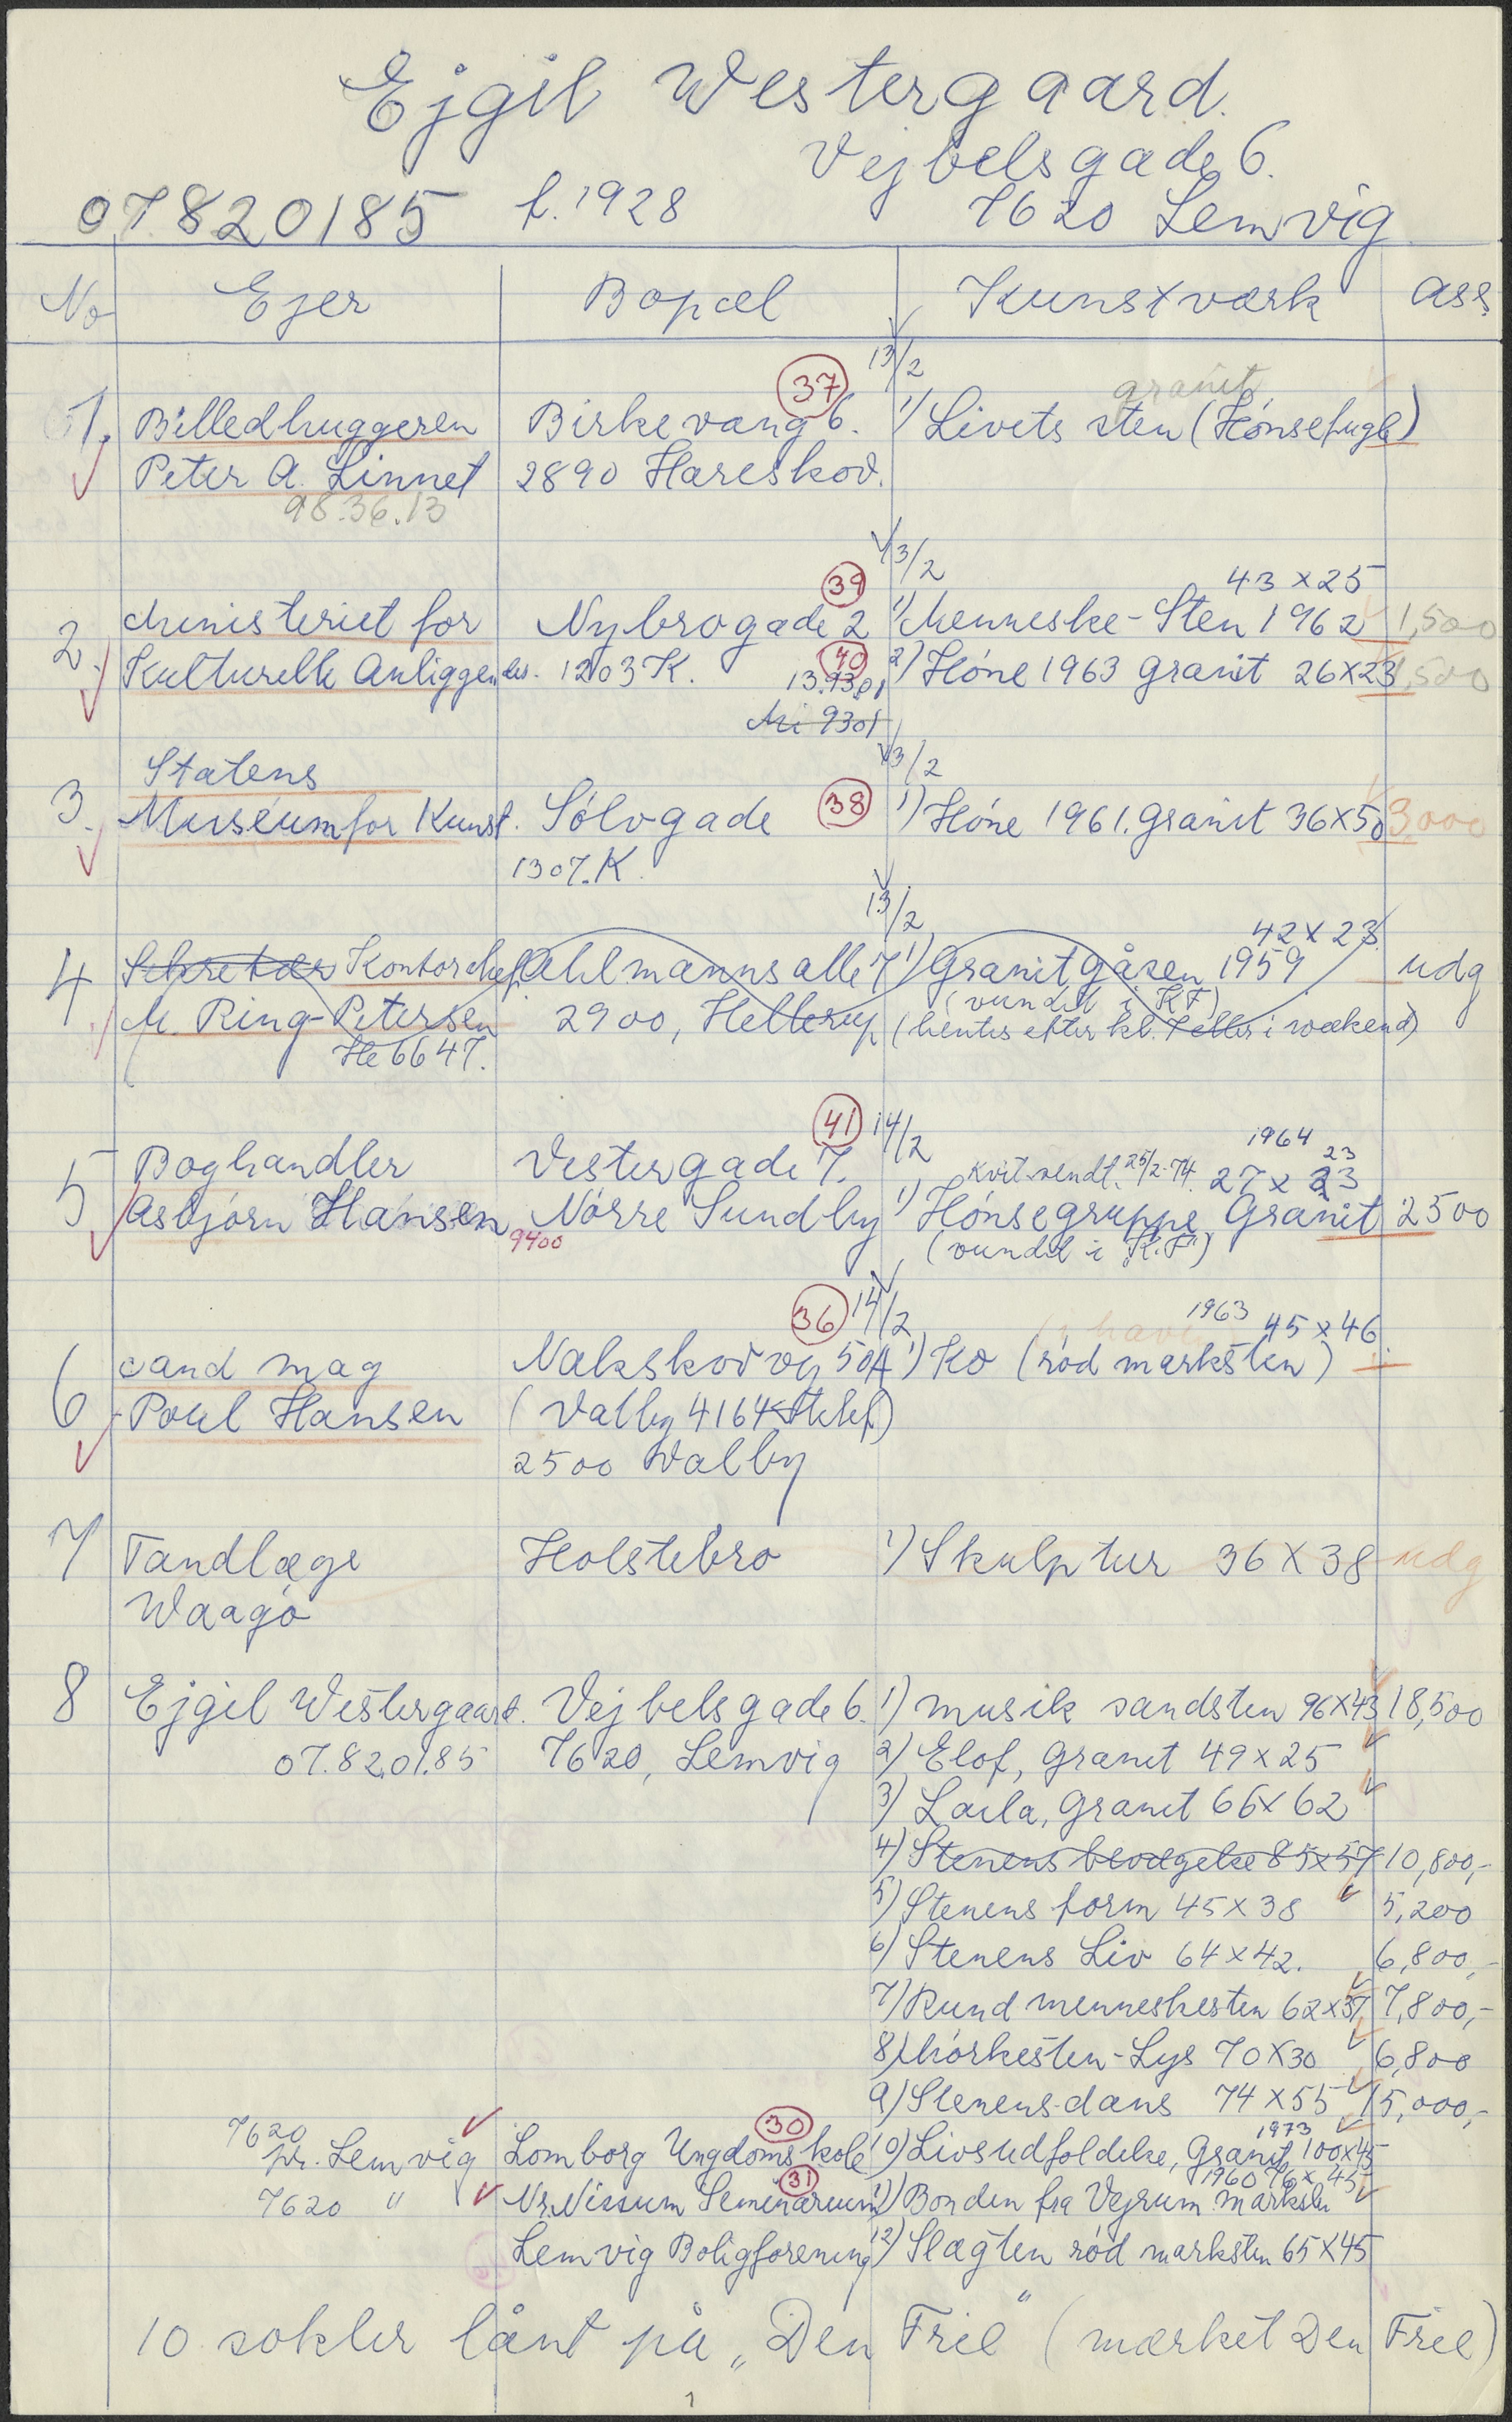 Ejgil Westergaard.
Vejbelsgade 6.
07820185 f. 1928 7620 Lemvig
No Ejer Bopæl Kunstværk ass.
13/2
37 granit
1. Billedhuggeren Birkevang 6. 1) Livets sten (Hónsefugl)
Peter A. Linnet 2890 Hareskov.
98.36.13
13/2
39 43 x 25
2. Ministeriet for Nybrogade 2 1) Menneske-Sten 1962 1,500
Kulturelle Anliggender. 1203 K. 40 2) Hóne 1963 Granit 26x23 1,500
13.93.01
Mi 9301
Statens 13/2
3. Museum for Kunst. Sólvgade 38 1) Hóne 1961. Granit 36x50 3,000
1307. K.
13/2
42 x 23
4 Sekretær Kontorchef Ahlmannsalle 7 1) Granitgåsen 1959 udg
M. Ring-Petersen 2900, Hellerup (vundet i KF)
He 6647. (hentes efter kl. eller i weekend)
41 14/2 1964 23
5 Boghandler Vestergade 7. Kvit. sendt. 25/2-74. 27 x 23
Asbjórn Hansen Nórre Sundby 1) Hónsegruppe Granit 2500
9400 (vundet i „K.F")
36 14/2 1963 45 x 46
6 cand mag Nakskovvej 50A 1) Ko (ród marksten)
Poul Hansen (Valby 4164 )
2500 Valby
7 Tandlæge Holstebro 1) Skulptur 36 x 38 udg
Waagó
8 Ejgil Westergaard. Vejbelsgade 6. 1) musik sandsten 96x43 18,500
07.820185 7620, Lemvig 2) Elof, Granit 49 x 25
3) Laila, Granit 66x 62
4) Stenens bevægelse 85x57 10,800,-
5) Stenens form 45 x 38 5,200
6) Stenens Liv 64 x 42. 6,800,-
7) Rund menneskesten 62x37 7,800,-
8) Mórkesten-Lys 70x30 6,800
9) Stenens-dans 74 x 55 15,000,-
7620 30 1973
pr. Lemvig Lomborg Ungdomsskole 10) Livsudfoldelse, Granit 100x45
31 1960 76x45
7620 " Nr. Nissum Seminarium 11) Bonden fra Vejrum marksten
Lemvig Boligforening 12) Slægten ród marksten 65x45
10 sokler lånt på „Den Frie" (mærket Den Frie)
1